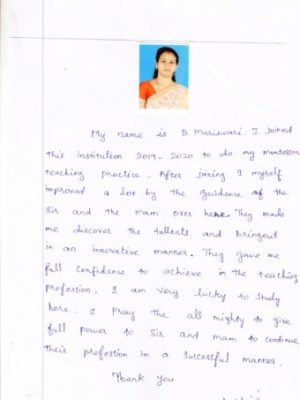 My name is B Mariswari. I joined
this institution 2019-2020 to do my montessori
teaching practice. After joining I myself
improved a lot by the guidence of the
Sir and the mam over here. They made
me discover the tallents and bringout
in an innovative manner. They gave me
full confidence to achieve in the teaching
profession. I am very lucky to study
here. I pray the all mighty to give
full power to Sir and mam to continue
their profession in a successful manner.
Thank you